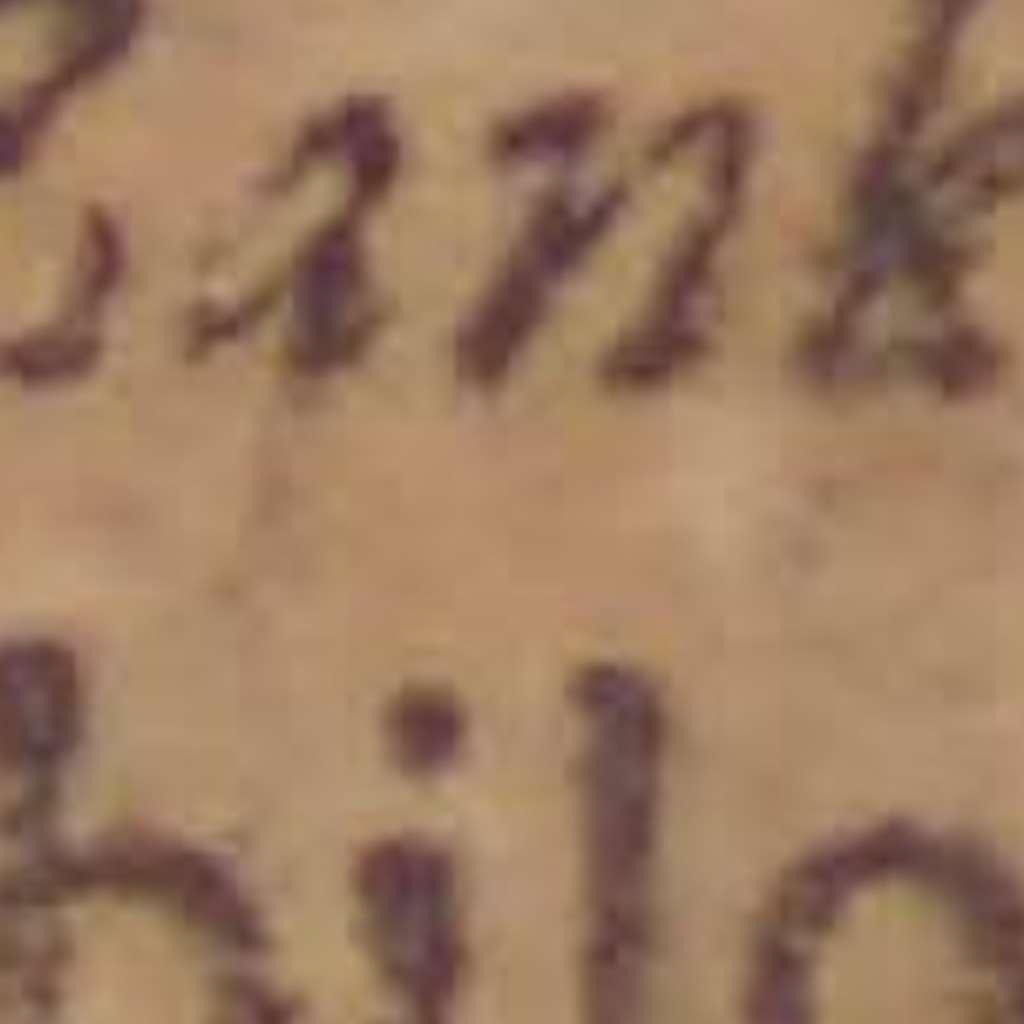 ank
hilo